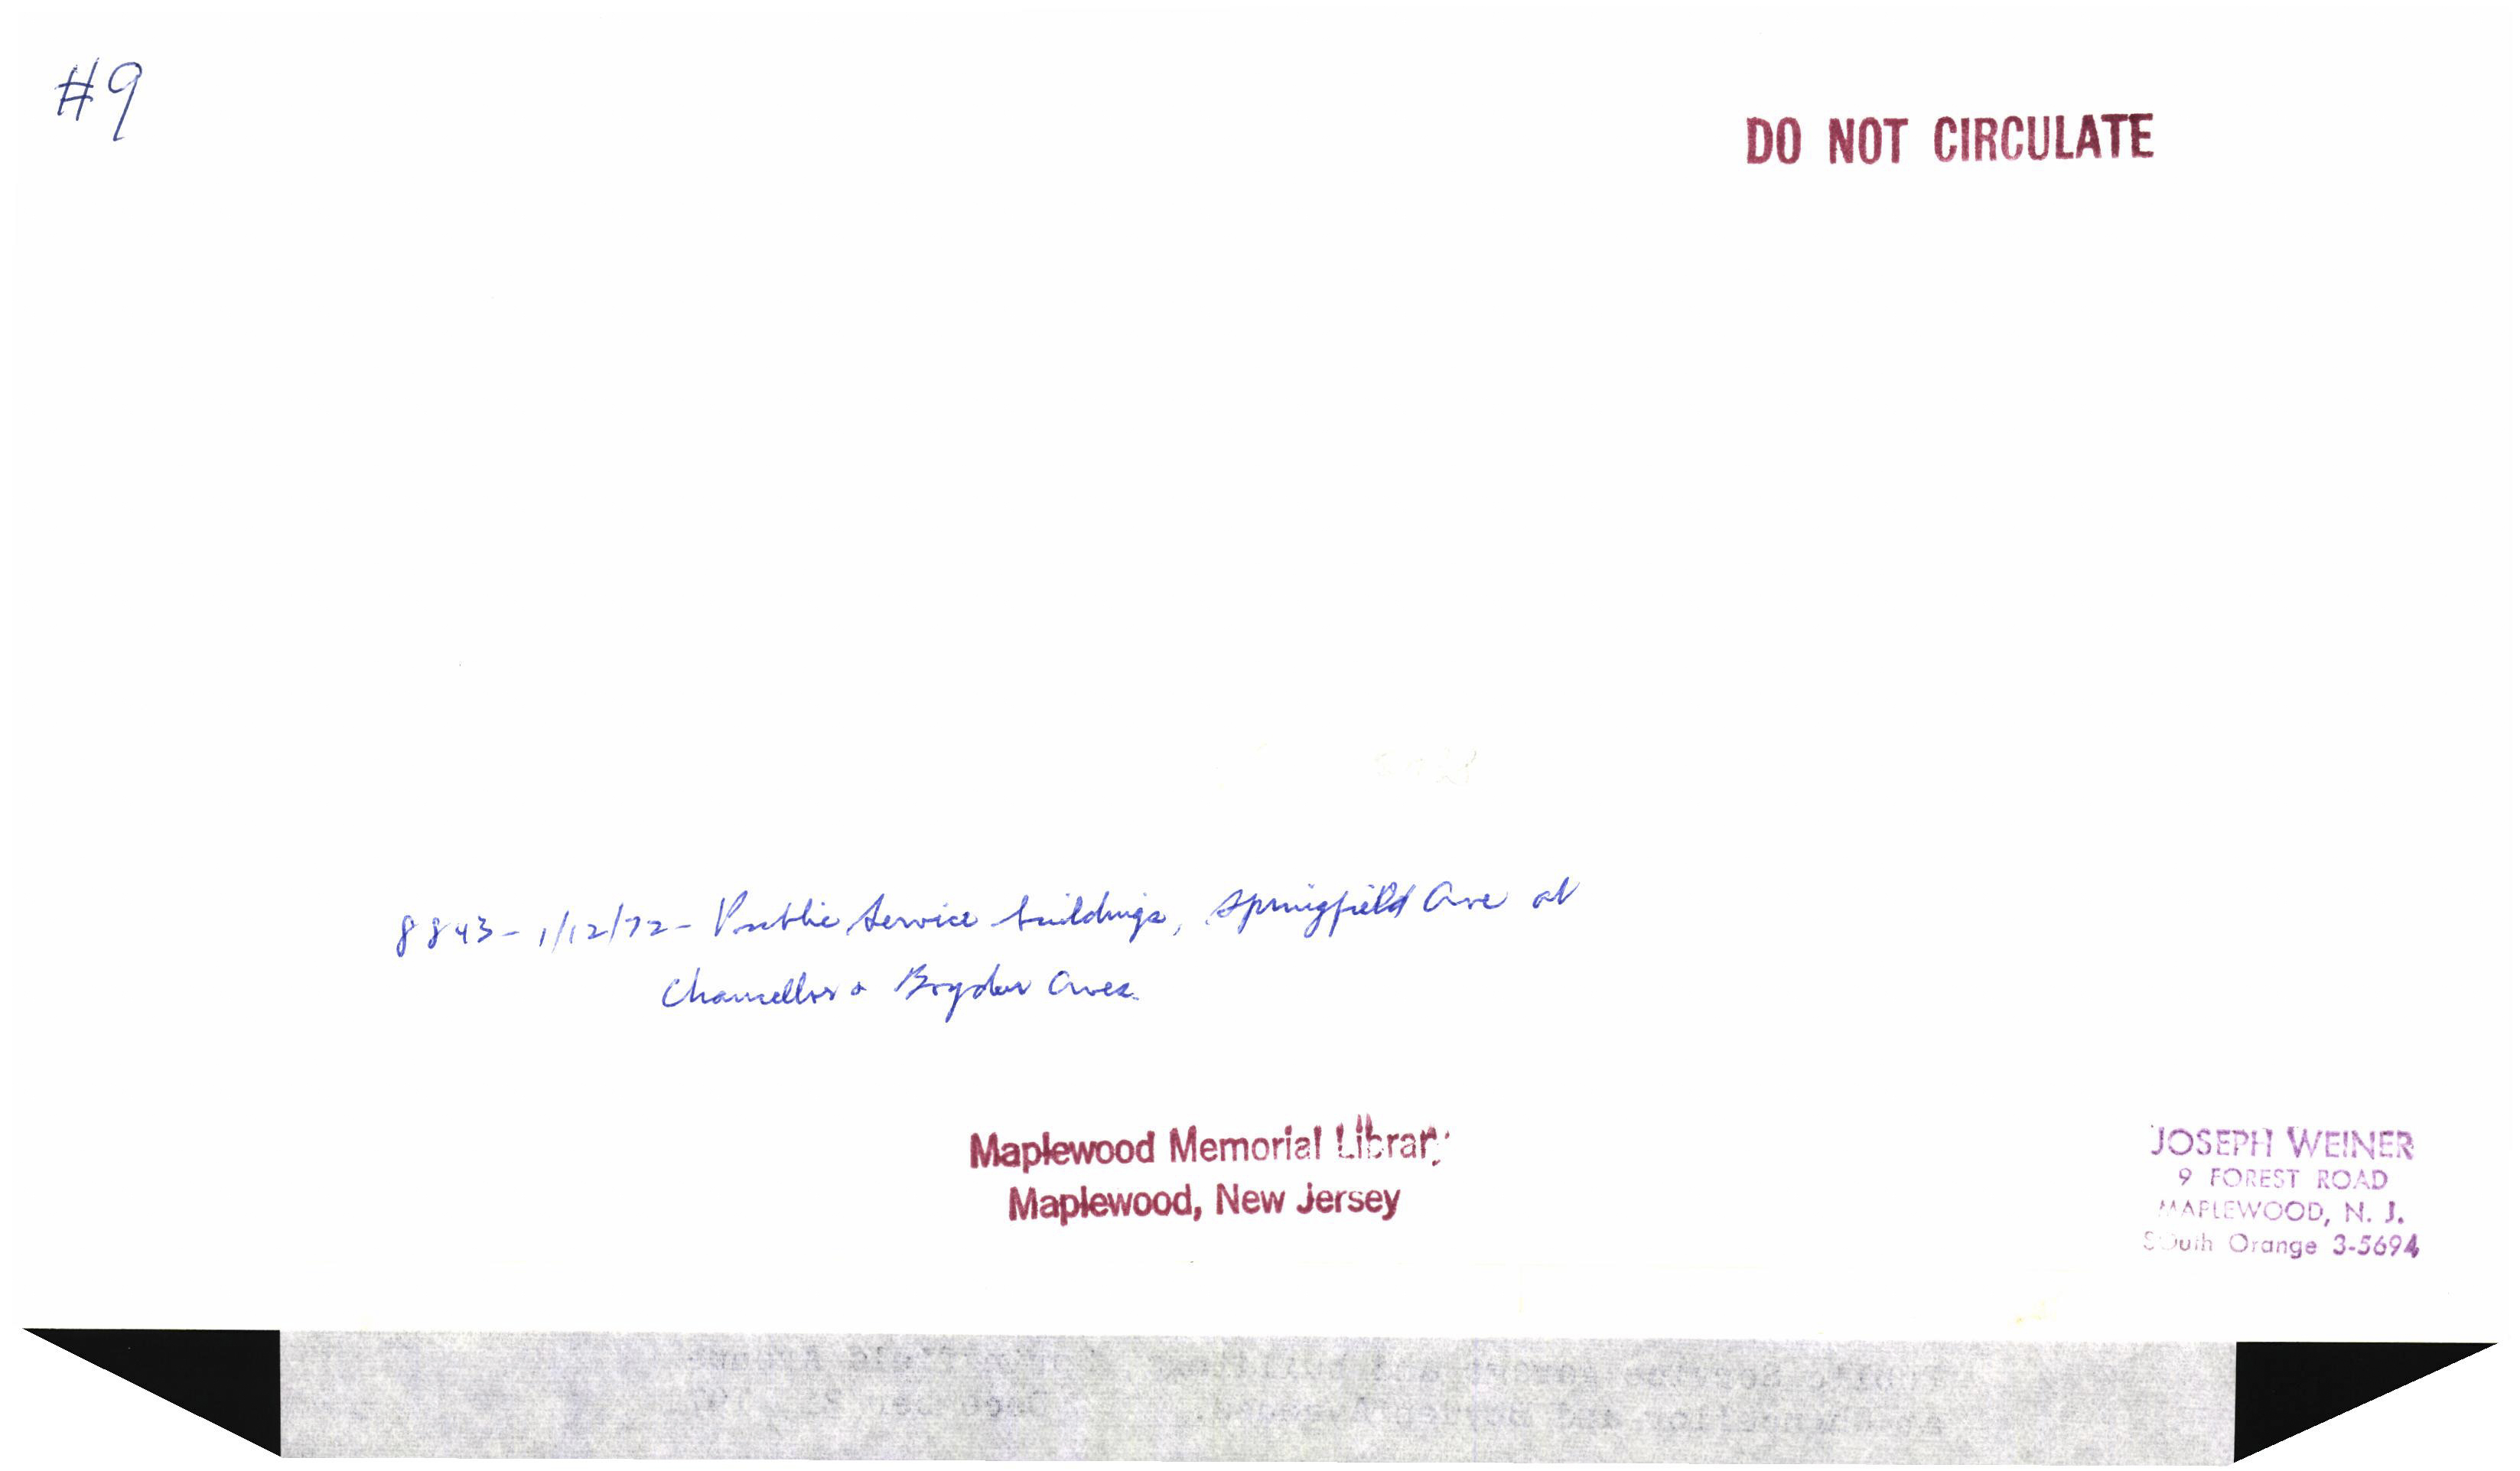 #9
DO NOT CIRCULATE
8843 - 1/12/72 - Public Service buildings, Springfield Ave at
Chancellor & Boyden Aves.
Maplewood Memorial Library
Maplewood, New Jersey
JOSEPH WEINER
9 FOREST ROAD
MAPLEWOOD, N. J.
SOuth Orange 3-5694